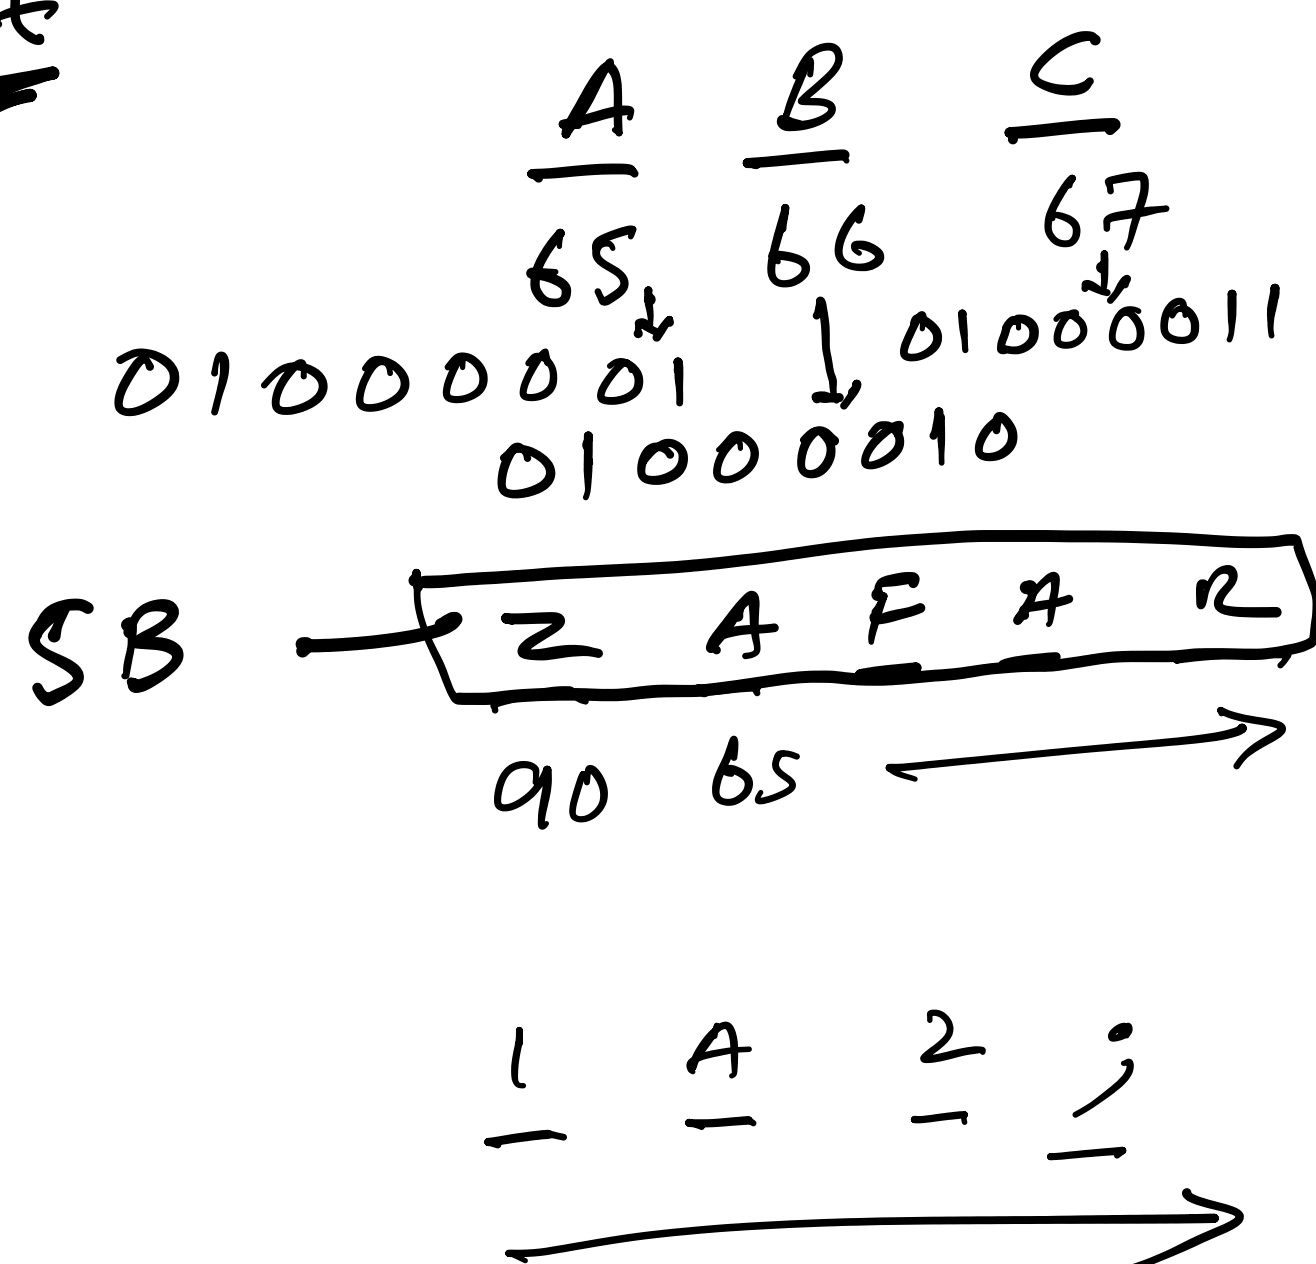 A B C
65 66 67
01000001 01000011
01000010
SB Z A F A R
90 65
1 A 2 ;